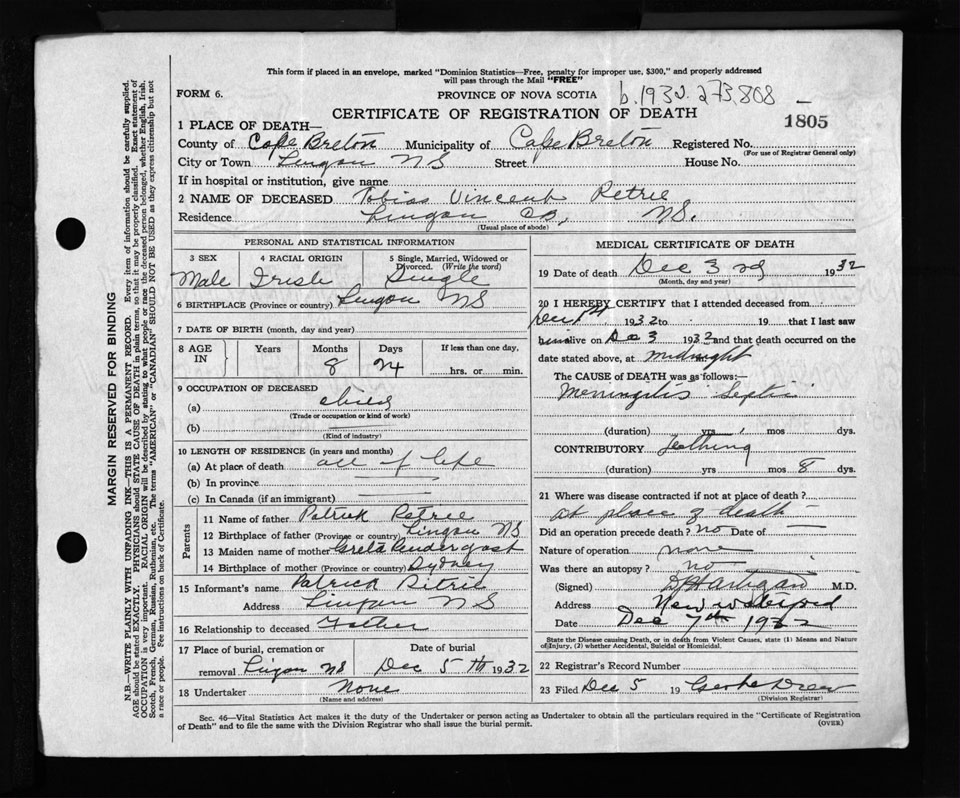 This form if placed in an envelope, marked "Dominion Statistics—Free, penalty for improper use, $300," and properly addressed
will pass through the Mail "FREE"
FORM 6.
PROVINCE OF NOVA SCOTIA
b.1932.273,808
CERTIFICATE OF REGISTRATION OF DEATH
1805
1 PLACE OF DEATH—
County of Cape Breton Municipality of Cape Breton Registered No.
(For use of Registrar General only)
City or Town Lingan NS Street House No.
If in hospital or institution, give name
2 NAME OF DECEASED Tobias Vincent Petrie
Residence Lingan CB, NS.
(Usual place of abode)
PERSONAL AND STATISTICAL INFORMATION
3 SEX 4 RACIAL ORIGIN 5 Single, Married, Widowed or
Divorced. (Write the word)
Male Irish Single
6 BIRTHPLACE (Province or country) Lingan NS
7 DATE OF BIRTH (month, day and year)
8 AGE IN Years Months Days If less than one day,
8 24 hrs. or min.
9 OCCUPATION OF DECEASED
(a) child
(Trade or occupation or kind of work)
(b)
(Kind of industry)
10 LENGTH OF RESIDENCE (in years and months)
(a) At place of death all of life
(b) In province
(c) In Canada (if an immigrant)
Parents
11 Name of father Patrick Petrie
12 Birthplace of father (Province or country) Lingan NS
13 Maiden name of mother Greta Pendergast
14 Birthplace of mother (Province or country) Sydney
15 Informant's name Patrick Petrie
Address Lingan NS
16 Relationship to deceased Father
17 Place of burial, cremation or Date of burial
removal Lingan NS Dec 5th 1932
18 Undertaker None
(Name and address)
MEDICAL CERTIFICATE OF DEATH
19 Date of death Dec 3rd 1932
(Month, day and year)
20 I HEREBY CERTIFY that I attended deceased from
Dec 1st 1932 to 19 that I last saw
him alive on Dec 3 1932 and that death occurred on the
date stated above, at midnight
The CAUSE OF DEATH was as follows:—
Menningitis Septic
(duration) yrs mos dys.
CONTRIBUTORY Teething
(duration) yrs mos 8 dys.
21 Where was disease contracted if not at place of death?
at place of death
Did an operation precede death? no Date of
Nature of operation none
Was there an autopsy? no
(Signed) Hartigan M.D.
Address New Waterford
Date Dec 7th 1932
State the Disease causing Death, or in death from Violent Causes, state (1) Means and Nature
of Injury, (2) whether Accidental, Suicidal or Homicidal.
22 Registrar's Record Number
23 Filed Dec 5 19
(Division Registrar)
Sec. 46—Vital Statistics Act makes it the duty of the Undertaker or person acting as Undertaker to obtain all the particulars required in the "Certificate of Registration
of Death" and to file the same with the Division Registrar who shall issue the burial permit.
(OVER)
MARGIN RESERVED FOR BINDING
N.B.—WRITE PLAINLY WITH UNFADING INK—THIS IS A PERMANENT RECORD. Every item of information should be carefully supplied.
AGE should be stated EXACTLY. PHYSICIANS should STATE CAUSE OF DEATH in plain terms, so that it may be properly classified. Exact statement of
OCCUPATION is very important. RACIAL ORIGIN will be described by stating to what people or race the deceased person belonged, whether English, Irish,
Scotch, French, German, Russian, Ruthenian, etc. The terms "AMERICAN" or "CANADIAN" SHOULD NOT BE USED as they express citizenship but not
a race or people. See instructions on back of Certificate.